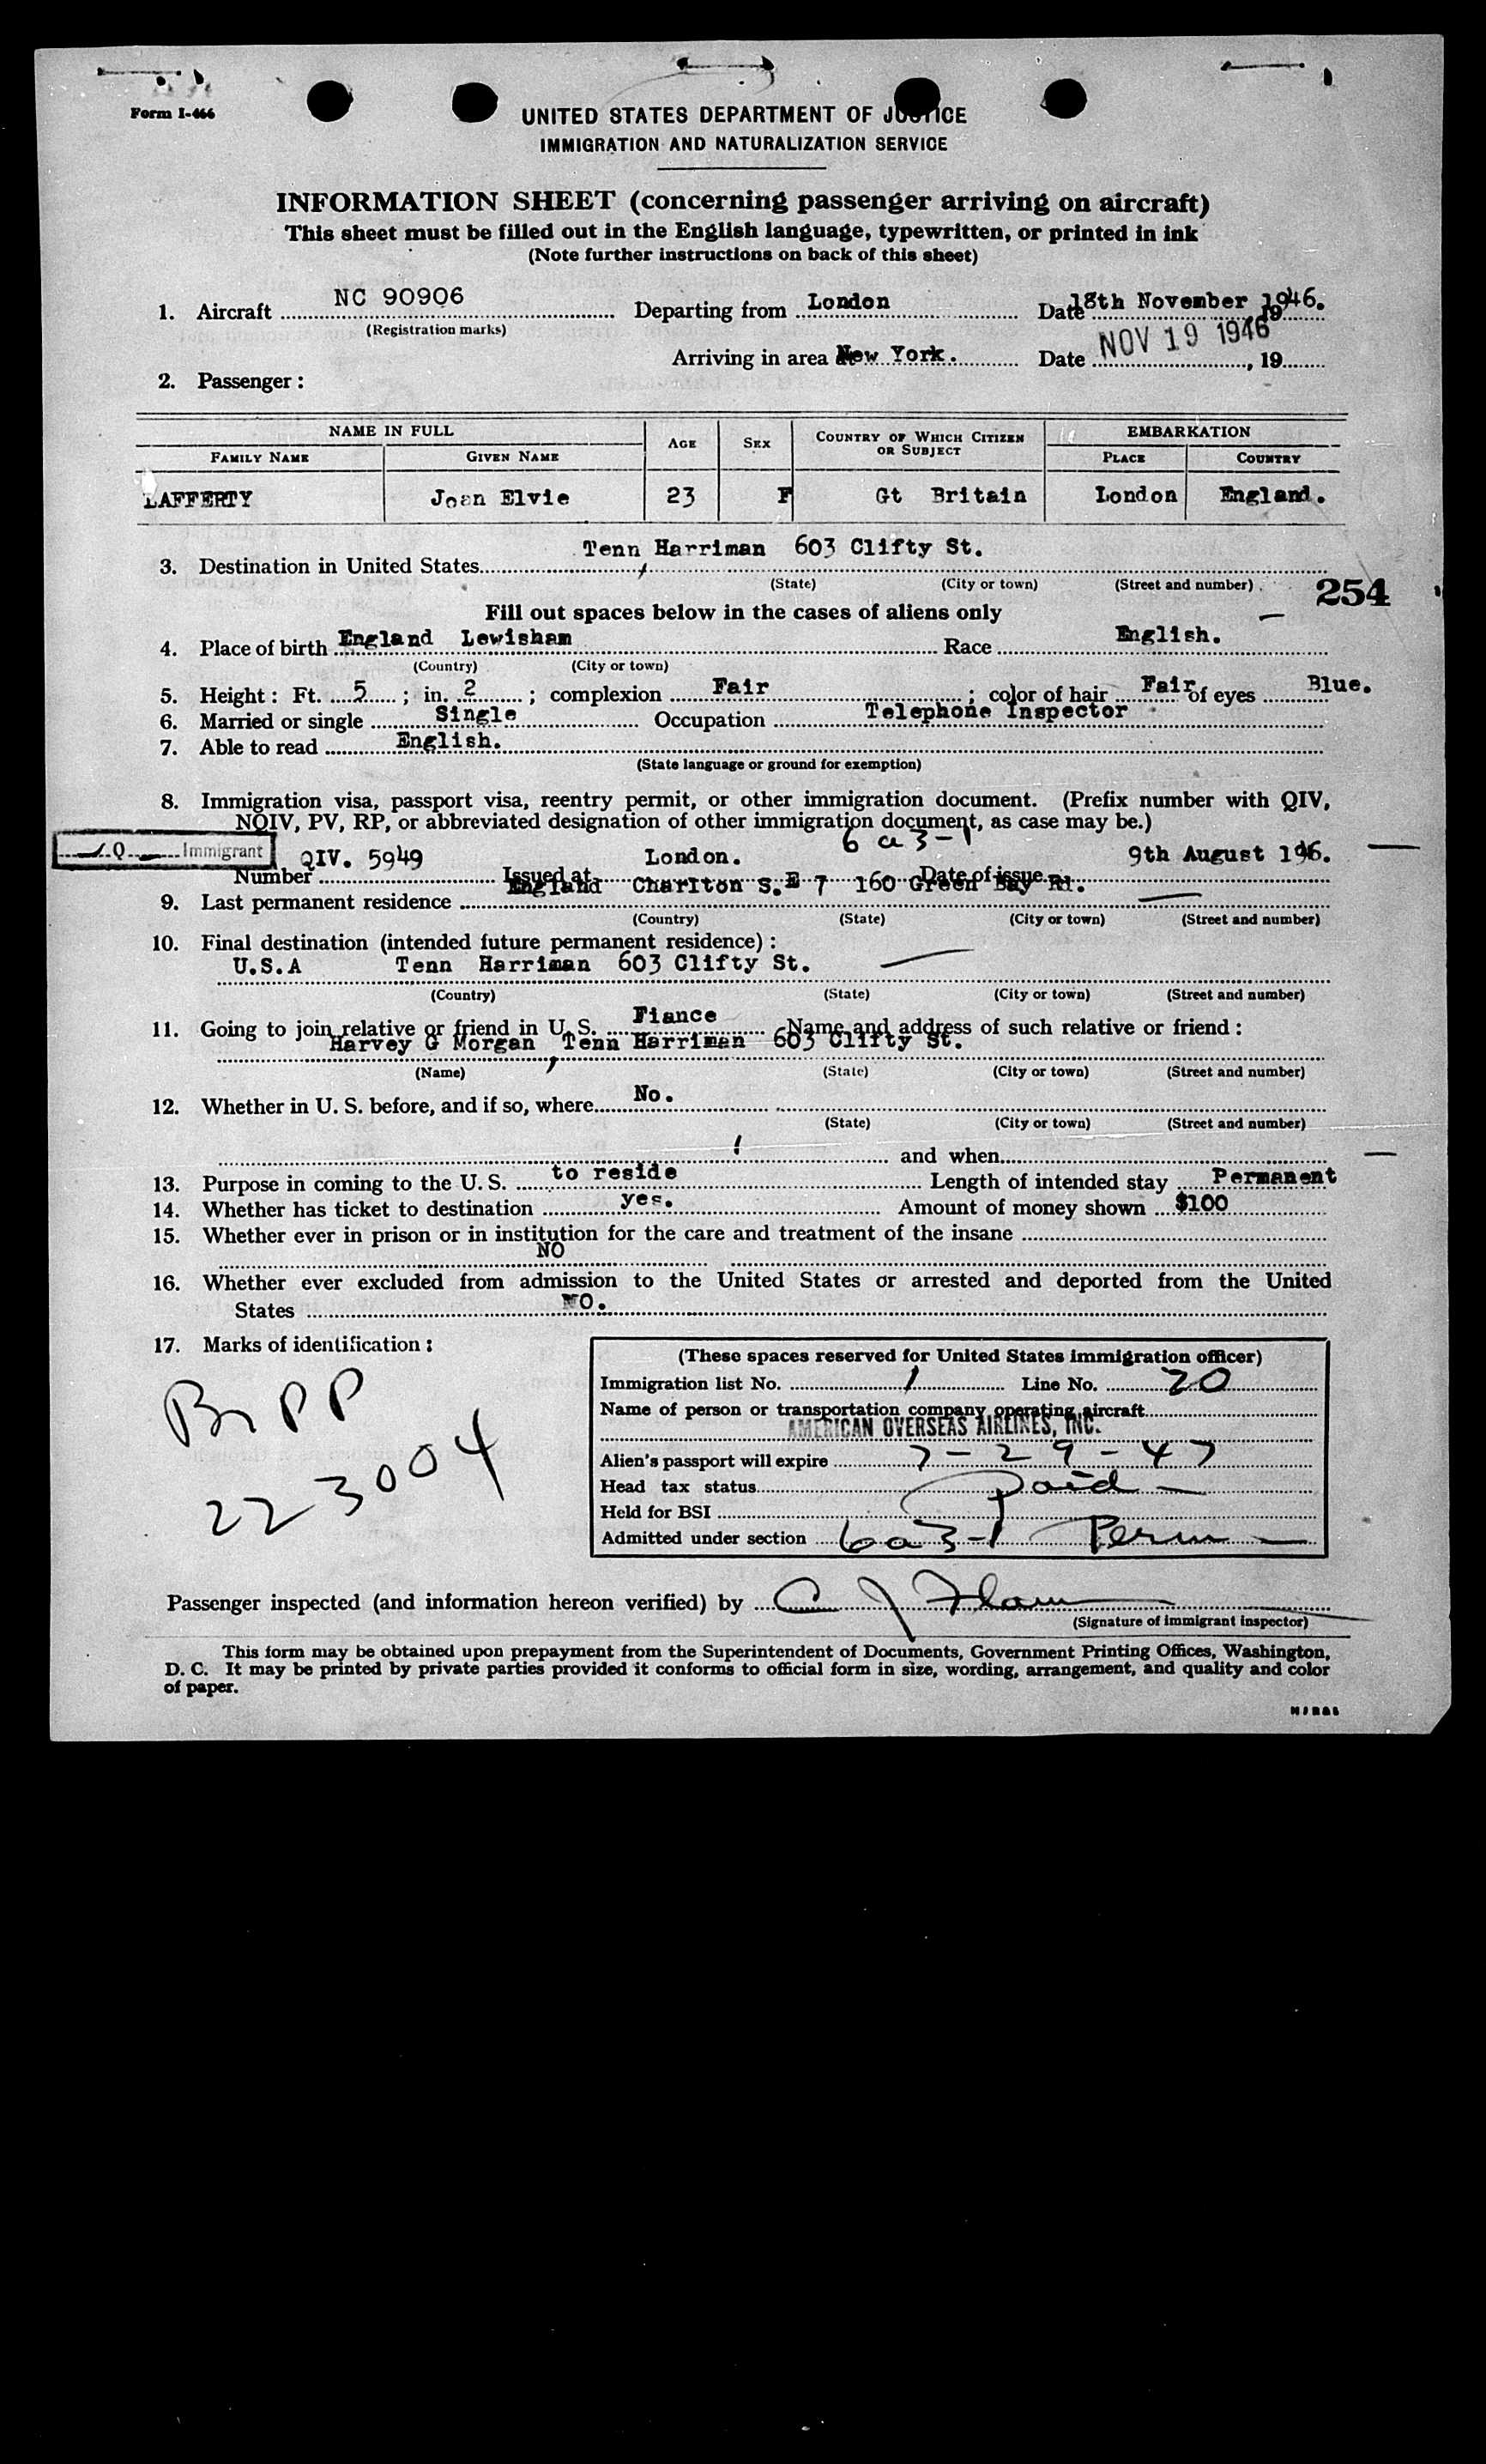 Form I-466
UNITED STATES DEPARTMENT OF JUSTICE
IMMIGRATION AND NATURALIZATION SERVICE
INFORMATION SHEET (concerning passenger arriving on aircraft)
This sheet must be filled out in the English language, typewritten, or printed in ink
(Note further instructions on back of this sheet)
1. Aircraft NC 90906 Departing from London Date 18th November 1946.
(Registration marks)
Arriving in area New York. Date NOV 19 1946, 19
2. Passenger:
NAME IN FULL AGE SEX COUNTRY OF WHICH CITIZEN OR SUBJECT EMBARKATION
FAMILY NAME GIVEN NAME PLACE COUNTRY
LAFFERTY Joan Elvie 23 F Gt Britain London England.
3. Destination in United States Tenn Harriman 603 Clifty St.
(State) (City or town) (Street and number)
254
Fill out spaces below in the cases of aliens only
4. Place of birth England Lewisham Race English.
(Country) (City or town)
5. Height: Ft. 5; in. 2; complexion Fair; color of hair Fair of eyes Blue.
6. Married or single Single Occupation Telephone Inspector
7. Able to read English.
(State language or ground for exemption)
8. Immigration visa, passport visa, reentry permit, or other immigration document. (Prefix number with QIV,
NQIV, PV, RP, or abbreviated designation of other immigration document, as case may be.)
6 a 3-1
Q Immigrant
Number QIV. 5949 Issued at London. Date of issue 9th August 196.
9. Last permanent residence England Charlton S.E 7 160 Green Bay Rd.
(Country) (State) (City or town) (Street and number)
10. Final destination (intended future permanent residence):
U.S.A Tenn Harriman 603 Clifty St.
(Country) (State) (City or town) (Street and number)
11. Going to join relative or friend in U. S. Fiance Name and address of such relative or friend:
Harvey G Morgan Tenn Harriman 603 Clifty St.
(Name) (State) (City or town) (Street and number)
12. Whether in U. S. before, and if so, where No.
(State) (City or town) (Street and number)
and when
13. Purpose in coming to the U. S. to reside Length of intended stay Permanent
14. Whether has ticket to destination yes. Amount of money shown $100
15. Whether ever in prison or in institution for the care and treatment of the insane
NO
16. Whether ever excluded from admission to the United States or arrested and deported from the United
States NO.
17. Marks of identification:
Br PP
223004
(These spaces reserved for United States immigration officer)
Immigration list No. 1 Line No. 20
Name of person or transportation company operating aircraft
AMERICAN OVERSEAS AIRLINES, INC.
Alien's passport will expire 7-29-47
Head tax status paid
Held for BSI
Admitted under section 6a3-1 Perm
Passenger inspected (and information hereon verified) by C J
(Signature of immigrant inspector)
This form may be obtained upon prepayment from the Superintendent of Documents, Government Printing Offices, Washington,
D. C. It may be printed by private parties provided it conforms to official form in size, wording, arrangement, and quality and color
of paper.